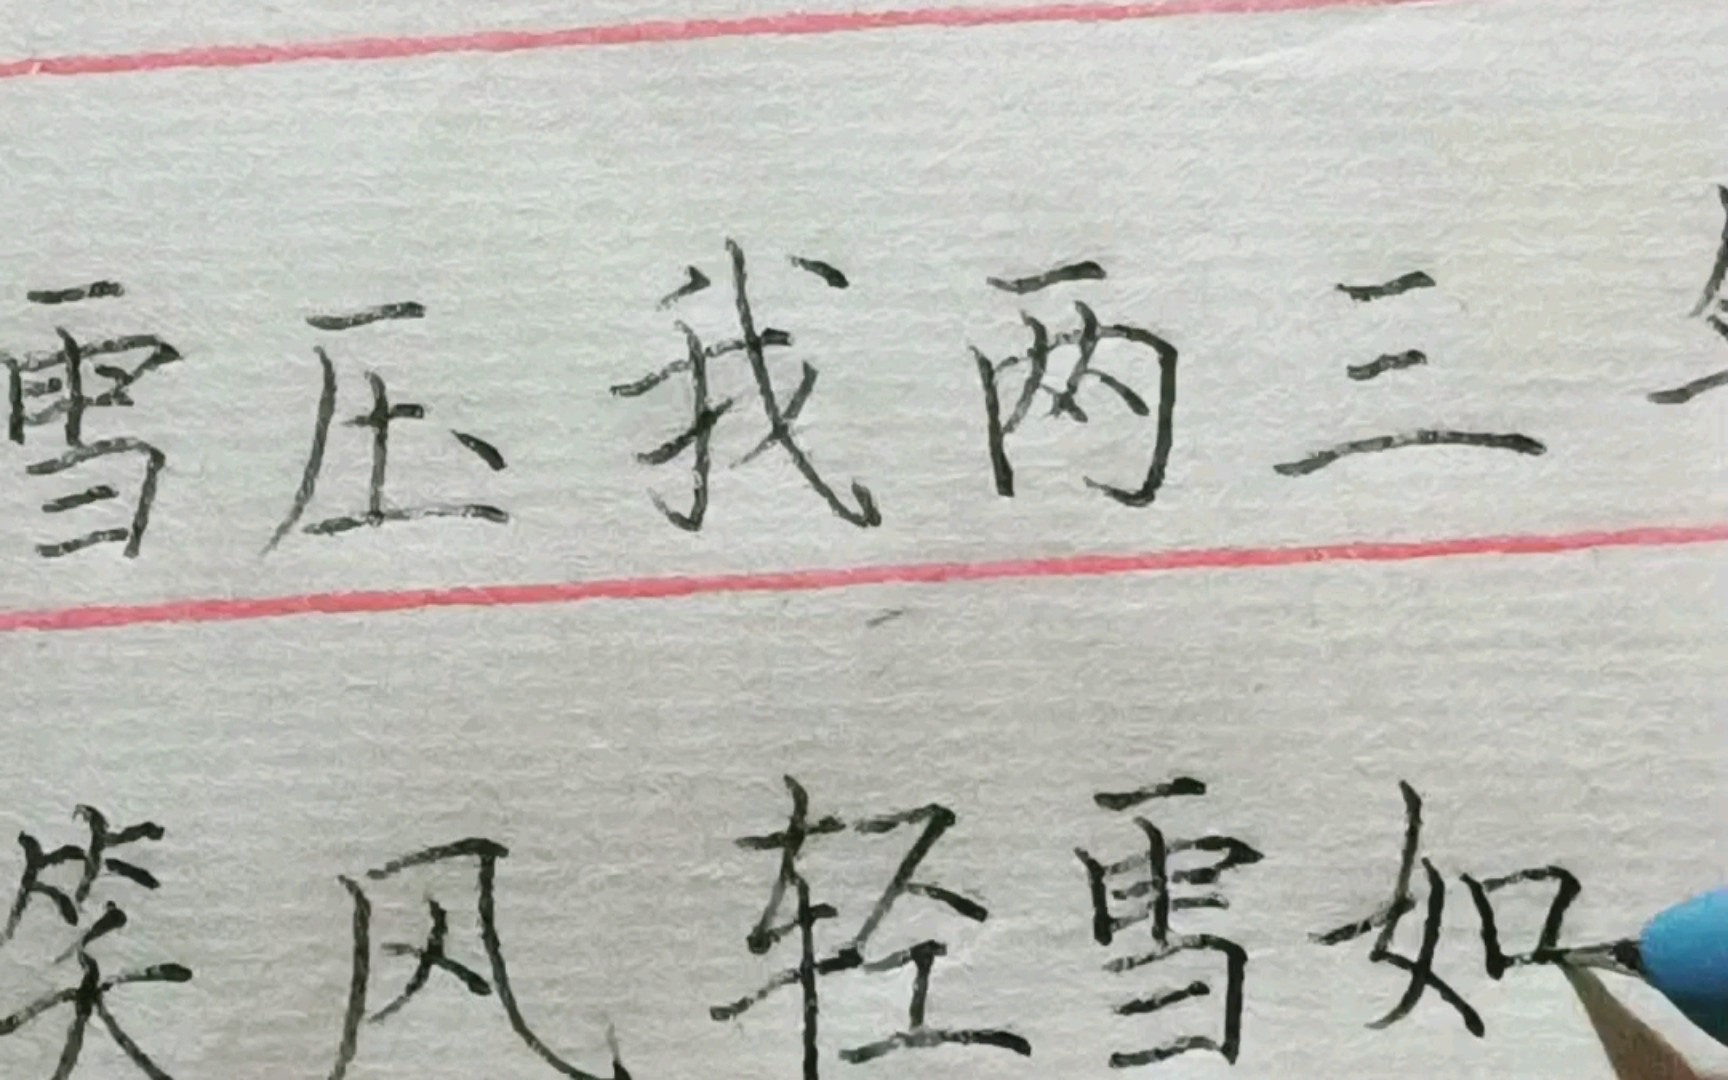 雪压我两三
笑风轻雪如